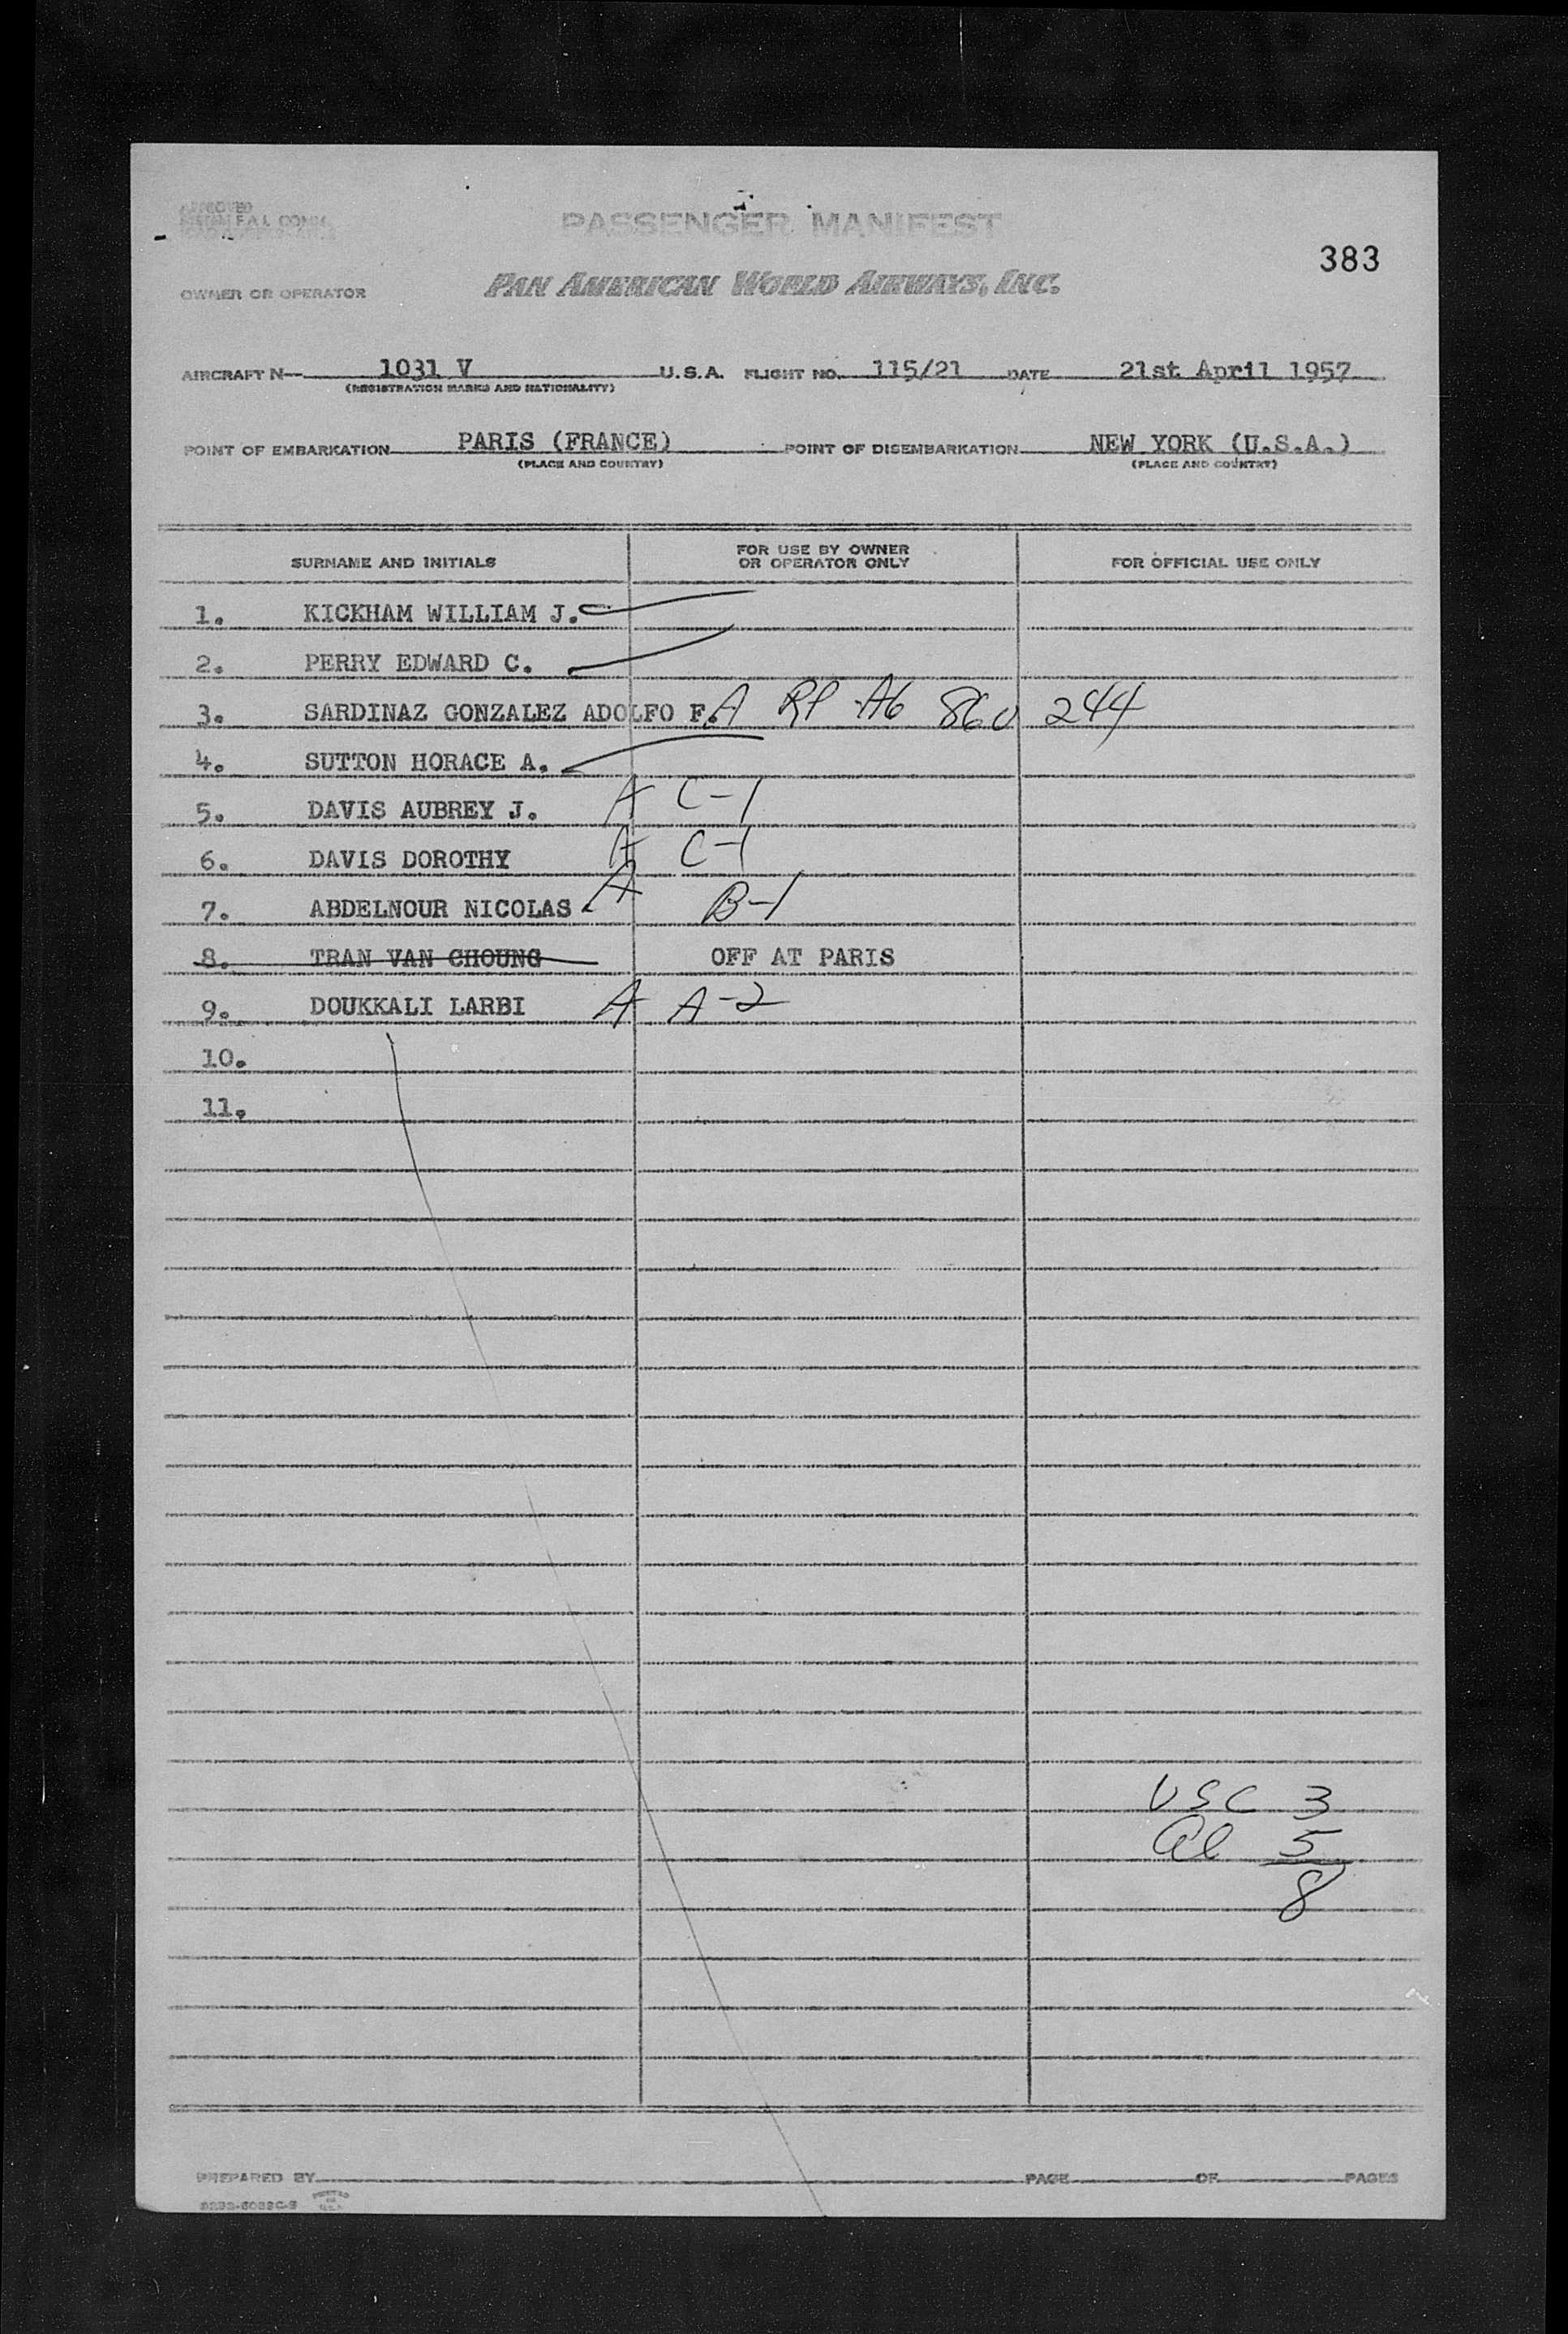 APPROVED
F.A.L. COMM.
PASSENGER MANIFEST
383
OWNER OR OPERATOR PAN AMERICAN WORLD AIRWAYS, INC.
AIRCRAFT N— 1031 V U.S.A. FLIGHT NO. 115/21 DATE 21st April 1957
(REGISTRATION MARKS AND NATIONALITY)
POINT OF EMBARKATION PARIS (FRANCE) POINT OF DISEMBARKATION NEW YORK (U.S.A.)
(PLACE AND COUNTRY) (PLACE AND COUNTRY)
SURNAME AND INITIALS FOR USE BY OWNER OR OPERATOR ONLY FOR OFFICIAL USE ONLY
1. KICKHAM WILLIAM J.
2. PERRY EDWARD C.
3. SARDINAZ GONZALEZ ADOLFO F. A RP A6 860 244
4. SUTTON HORACE A.
5. DAVIS AUBREY J. A C-1
6. DAVIS DOROTHY A C-1
7. ABDELNOUR NICOLAS A B-1
8. TRAN VAN CHOUNG OFF AT PARIS
9. DOUKKALI LARBI A A-2
10.
11.
USC 3
Al 5
8
PREPARED BY PAGE OF PAGES
PRINTED IN U.S.A.